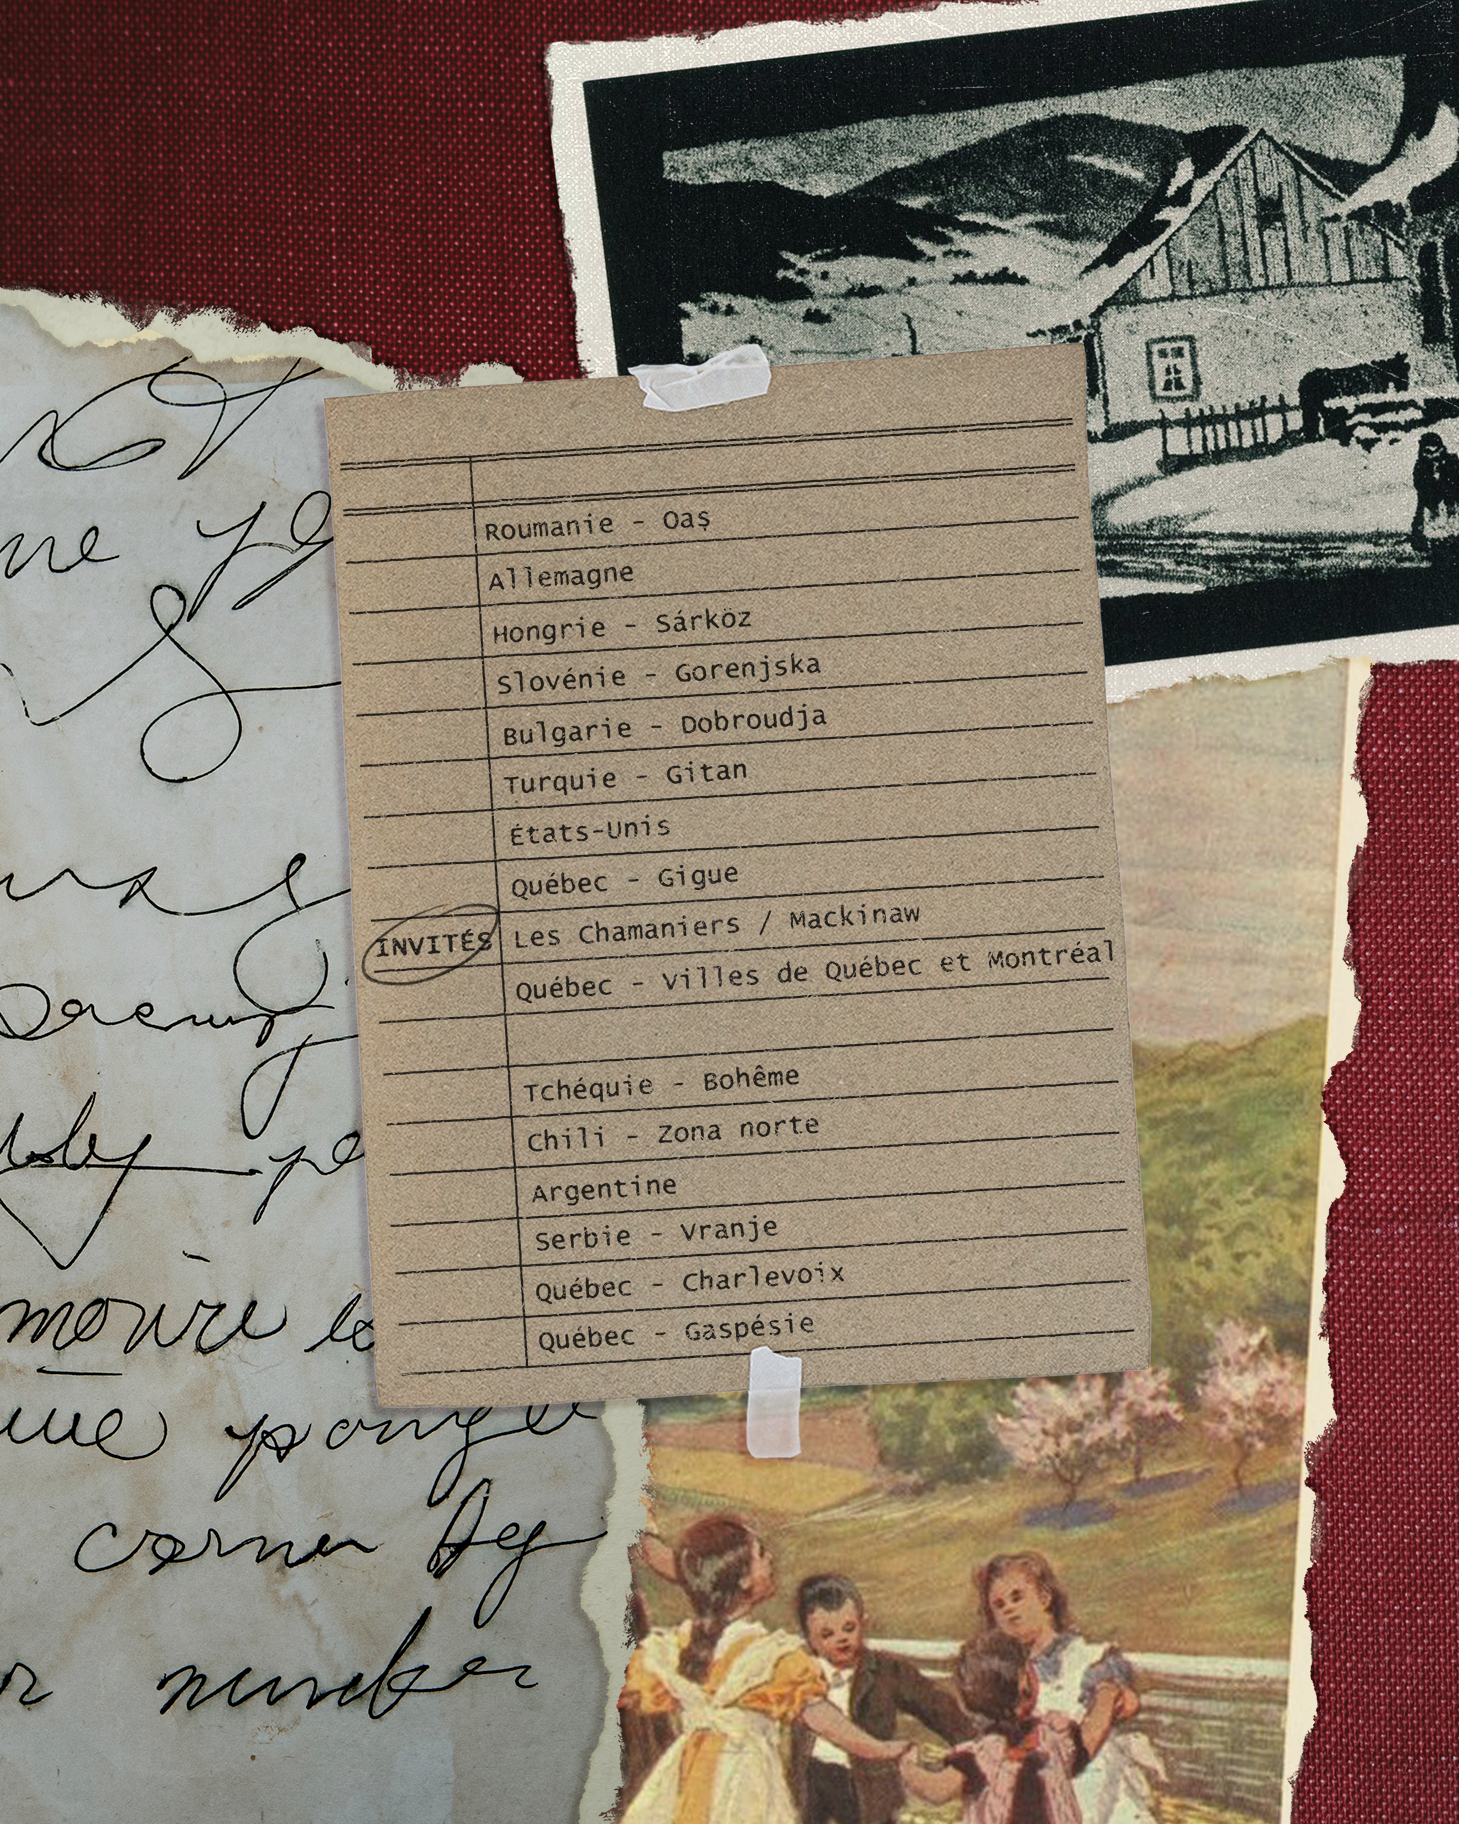 Roumanie - Oaș
Allemagne
Hongrie - Sárköz
Slovénie - Gorenjska
Bulgarie - Dobroudja
Turquie - Gitan
États-Unis
Québec - Gigue
INVITÉS Les Chamaniers / Mackinaw
Québec - Villes de Québec et Montréal
Tchéquie - Bohême
Chili - Zona norte
Argentine
Serbie - Vranje
Québec - Charlevoix
Québec - Gaspésie
corner
number